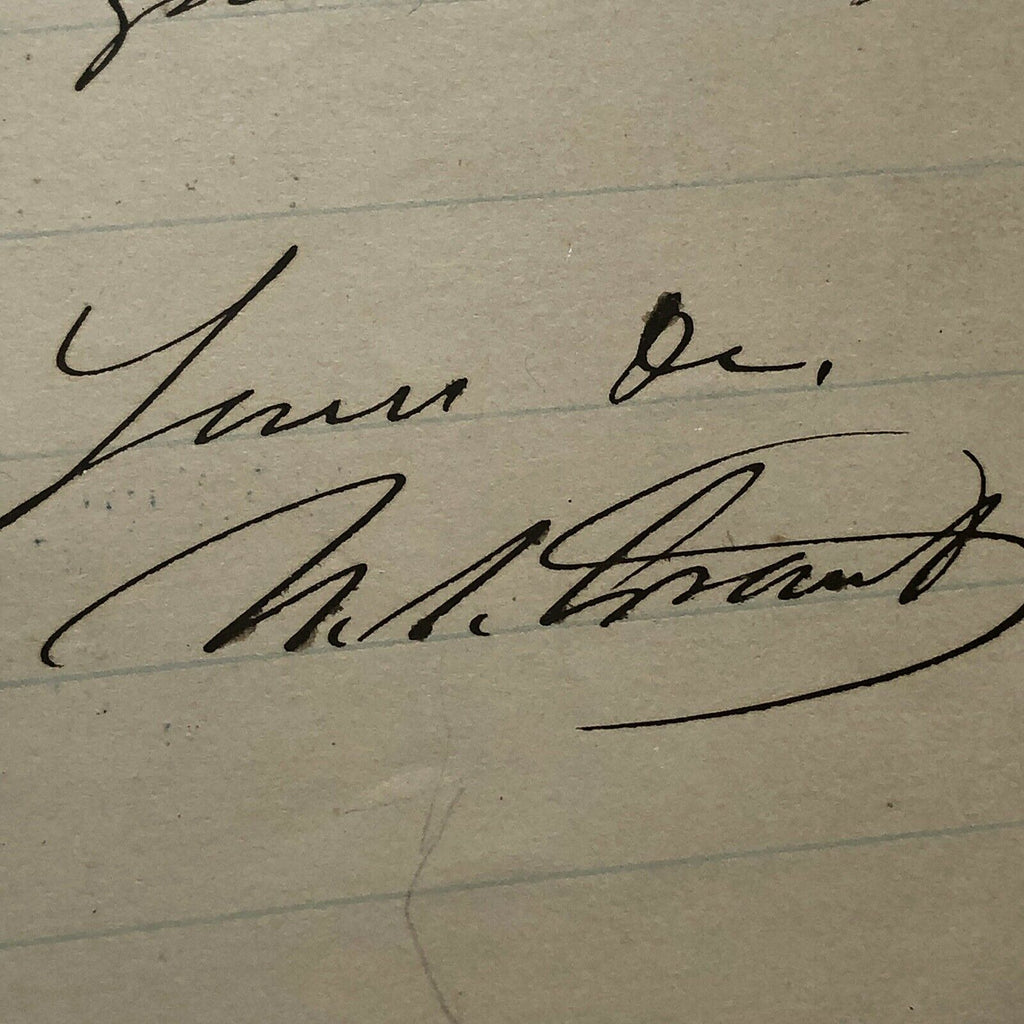 Yours &c.
U. S. Grant